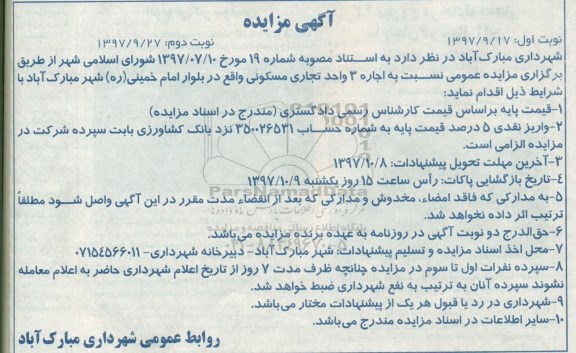 آگهی مزایده
نوبت اول: ۱۳۹۷/۹/۱۷
نوبت دوم: ۱۳۹۷/۹/۲۷
شهرداری مبارک‌آباد در نظر دارد به استناد مصوبه شماره ۱۹ مورخ ۱۳۹۷/۰۷/۱۰ شورای اسلامی شهر از طریق
برگزاری مزایده عمومی نسبت به اجاره ۳ واحد تجاری مسکونی واقع در بلوار امام خمینی(ره) شهر مبارک‌آباد با
شرایط ذیل اقدام نماید:
۱-قیمت پایه براساس قیمت کارشناس رسمی دادگستری (مندرج در اسناد مزایده)
۲-واریز نقدی ۵ درصد قیمت پایه به شماره حساب ۳۵۰۰۲۶۵۳۱ نزد بانک کشاورزی بابت سپرده شرکت در
مزایده الزامی است.
۳-آخرین مهلت تحویل پیشنهادات: ۱۳۹۷/۱۰/۸
۴-تاریخ بازگشایی پاکات: رأس ساعت ۱۵ روز یکشنبه ۱۳۹۷/۱۰/۹
۵-به مدارکی که فاقد امضاء، مخدوش و مدارکی که بعد از انقضاء مدت مقرر در این آگهی واصل شود مطلقاً
ترتیب اثر داده نخواهد شد.
۶-حق‌الدرج دو نوبت آگهی در روزنامه به عهده برنده مزایده می‌باشد.
۷-محل اخذ اسناد مزایده و تسلیم پیشنهادات: شهر مبارک‌آباد- دبیرخانه شهرداری- ۰۷۱۵۴۵۶۶۰۱۱
۸-سپرده نفرات اول تا سوم در مزایده چنانچه ظرف مدت ۷ روز از تاریخ اعلام شهرداری حاضر به اعلام معامله
نشوند سپرده آنان به ترتیب به نفع شهرداری ضبط خواهد شد.
۹-شهرداری در رد یا قبول هر یک از پیشنهادات مختار می‌باشد.
۱۰-سایر اطلاعات در اسناد مزایده مندرج می‌باشد.
روابط عمومی شهرداری مبارک‌آباد
ParsNamadData